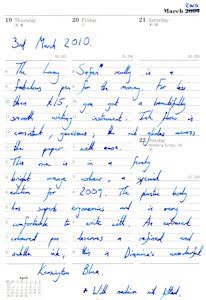 2nd
March 2009
19 Thursday
20 Friday
21 Saturday
3rd March 2010.
The Lamy Safari* really is a
fabulous pen for the money. For less
than £15, you get a beautifully
smooth writing instrument. Ink flow is
consistent, generous, the nib glides across
the paper with ease.
This one is in a funky
bright orange colour, a special
edition for 2009. The plastic body
has superb ergonomics and is very
comfortable to write with. An extrovert
coloured pen deserves a refined and
subtle ink, this is Diamine's wonderful
Kensington Blue.
* With medium nib fitted
April